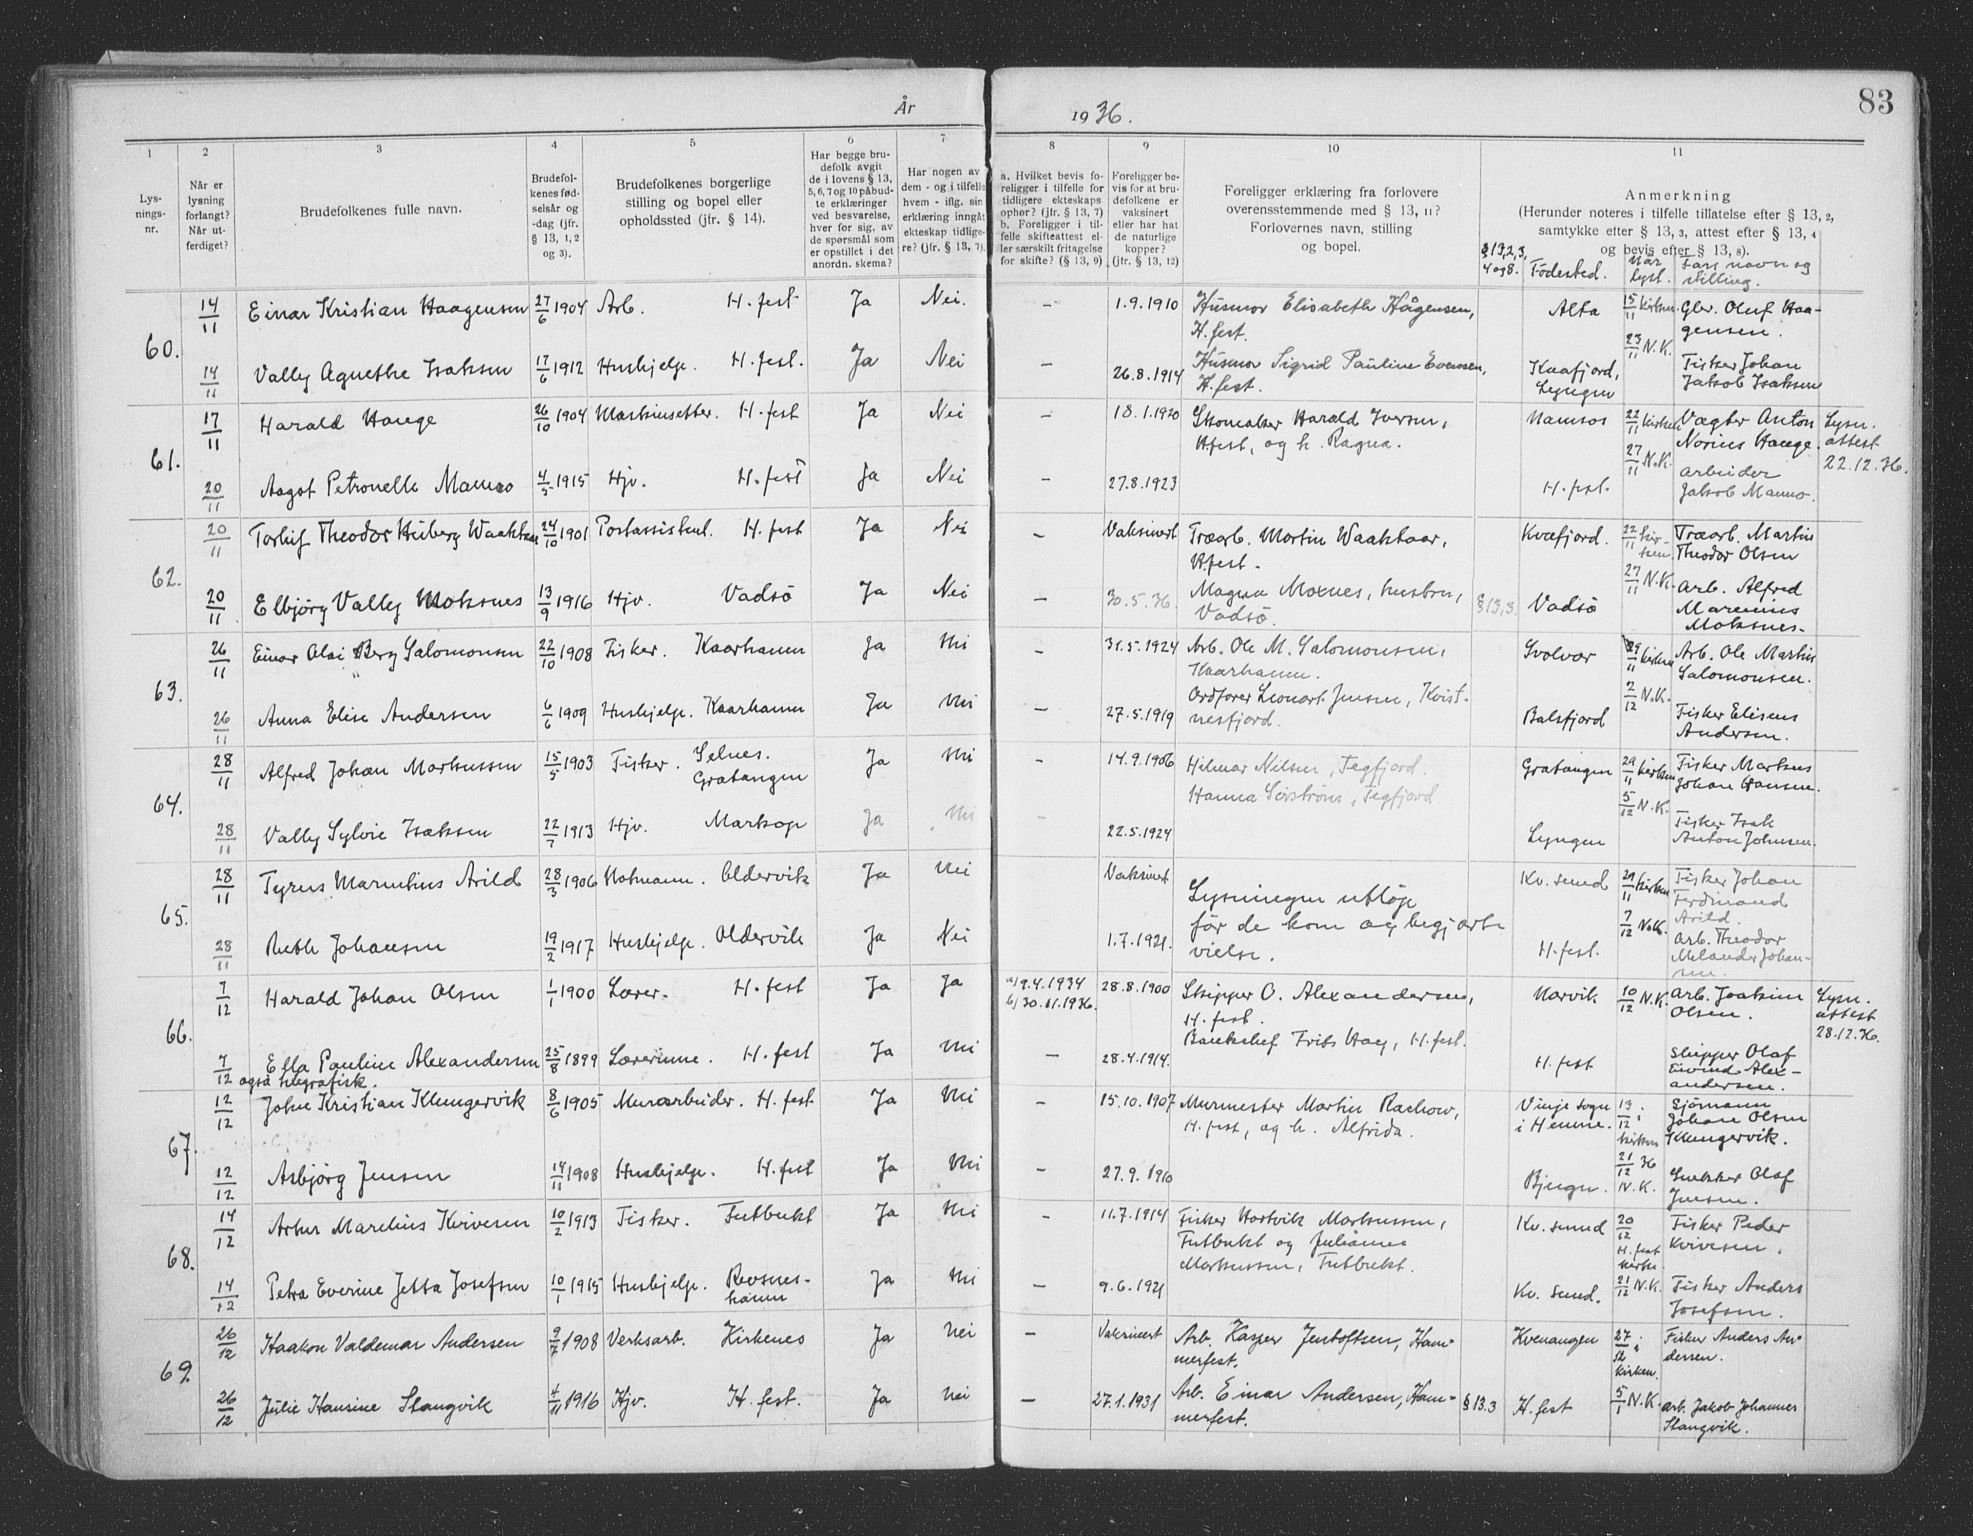 År 1936.
83
1 2 3 4 5 6 7 8 9 10 11
Lys-
nings-
nr.
Når er
lysning
forlangt?
Når ut-
ferdiget?
Brudefolkenes fulle navn.
Brudefol-
kenes fød-
selsår og
-dag (jfr.
§ 13, 1, 2
og 3).
Brudefolkenes borgerlige
stilling og bopel eller
opholdssted (jfr. § 14).
Har begge bru-
defolk avgit
de i lovens § 13,
5, 6, 7 og 10 påbud-
te erklæringer
ved besvarelse,
hver for sig, av
de spørsmål som
er opstillet i det
anordn. skema?
Har nogen av
dem - og i tilfelle
hvem - iflg. sin
erklæring inngått
ekteskap tidlige-
re? (jfr. § 13, 7).
a. Hvilket bevis fo-
religger i tilfelle for
tidligere ekteskaps
ophør? (jfr. § 13, 7)
b. Foreligger i til-
felle skifteattest el-
ler særskilt fritagelse
for skifte? (§ 13, 9)
Foreligger be-
vis for at bru-
defolkene er
vaksinert
eller har hat
de naturlige
kopper?
(jfr. § 13, 12)
Foreligger erklæring fra forlovere
overensstemmende med § 13, 11?
Forlovernes navn, stilling
og bopel.
Anmerkning
(Herunder noteres i tilfelle tillatelse efter § 13, 2,
samtykke efter § 13, 3, attest efter § 13, 4
og bevis efter § 13, 8).
§ 13,2,3,
4 og 8. Fødested. Når lyst. Fars navn og
stilling.
60.
14/11 Einar Kristian Haagensen 27/6 1904 Arb. H. fest Ja Nei. – 1.9.1910 Husmor Elisabeth Hågensen, Alta 15/11 kirken. Gbr. Oluf Haa-
H. fest. gensen.
23/11 N.K.
14/11 Vally Agnethe Isaksen 17/6 1912 Hushjelp. H. fest. Ja Nei – 26.8.1914 Husmor Sigrid Pauline Evensen, Kaafjord, Fisker Johan
H. fest. Lyngen Jakob Isaksen
61.
17/11 Harald Hauge 26/10 1904 Maskinsetter. H. fest Ja Nei – 18.1.1920 Skomaker Harald Iversen, Namsos 22/11 kirken Vagter Anton Lysn.
H.fest, og h. Ragna. Norius Hauge. attest
27/11 N.K. 22.12.36.
20/11 Aagot Petronelle Manno 4/5 1915 Hjv. H. fest Ja Nei – 27.8.1923 H. fest. Arbeider
Jakob Manno.
62.
20/11 Torleif Theodor Heiberg Waaktaar 24/10 1901 Postassistent. H. fest Ja Nei Vaksinert Træarb. Martin Waaktaar, Kvæfjord. 22/11 kir- Træarb. Martin
H.fest. ken Theodor Olsen
27/11 N.K.
20/11 Elbjörg Vally Moksnes 13/9 1916 Hjv. Vadsö Ja Nei – 30.5.36. Magna Moxnes, husbru, § 13,3. Vadsö Arb. Alfred
Vadsö. Marenius
Moksnes.
63.
26/11 Einar Olai Berg Salomonsen 22/10 1908 Fisker. Kaarhamn Ja Nei – 31.5.1924 Arb. Ole M. Salomonsen, Svolvær 29/11 kirken Arb. Ole Martin
Kaarhamn. Salomonsen.
2/12 N.K.
26/11 Anna Elise Andersen 6/6 1909 Hushjelp. Kaarhamn Ja Nei – 27.5.1919 Ordfører Leonart Jensen, Kvist- Balsfjord Fisker Elisens
nesfjord. Andersen.
64.
28/11 Alfred Johan Markussen 15/5 1903 Fisker. Selnes. Ja Nei – 14.9.1906 Hilmar Nilsen, Fegfjord. Gratangen 29/11 kirken Fisker Markus
Gratangen Hanna Seiström, Fegfjord. Johan Hansen.
5/12 N.K.
28/11 Vally Sylvie Isaksen 22/7 1913 Hjv. Markop Ja Nei – 22.5.1924 Lyngen Fisker Isak
Anton Johnsen.
65.
28/11 Tyrus Marnelius Arild 28/3 1906 Notmann. Oldervik Ja Nei Vaksinert Lysningen utløp Kv. sund 29/11 kirken Fisker Johan
før de kom og begjærte Ferdinand
vielse. Arild.
7/12 N.K.
28/11 Ruth Johansen 19/2 1917 Hushjelp. Oldervik Ja Nei 1.7.1921. H. fest. Arb. Theodor
Melander Johan-
sen.
66.
7/12 Harald Johan Olsen 1/1 1900 Lærer. H. fest Ja Ja a) 9.4.1934 28.8.1900 Skipper O. Alexandersen, Narvik 10/12 N.K. Arb. Joakim Lysn.
b) 30.11.1936. H. fest. Olsen. attest
28.12.36.
7/12 Ella Pauline Alexandersen 25/8 1899 Lærerinne. H. fest Ja Nei – 28.4.1914. Bankchef Frits Hoey, H. fest. H. fest Skipper Olaf
også telegrafisk. Eivind Alex-
andersen.
67.
12/12 Johe Kristian Klungervik 8/6 1905 Murarbeider. H. fest Ja Nei – 15.10.1907 Murmester Martin Rachow, Vinje sogn 13/12 i Sjömann
H. fest, og h. Alfrida. i Hemne. kirken Johan Olsen
Klungervik.
12/12 Asbjörg Jensen 14/11 1908 Hushjelp. H. fest Ja Nei – 27.9.1910 Bjugn. 21/12 36 N.K. Snekker Olaf
Jensen.
68.
14/12 Artur Marelius Kvivesen 10/2 1913 Fisker. Futbukt Ja Nei – 11.7.1914 Fisker Hartvik Markussen, Kv. sund 20/12 Fisker Peder
Futbukt og Julianne H. fest Kvivesen.
Markussen, Futbukt. kirke
14/12 Petra Everine Jetta Josefsen 10/1 1915 Hushjelp. Revsnes- Ja Nei – 9.6.1921 Kv. sund. 21/12 N.K. Fisker Anders
hamn Josefsen.
69.
26/12 Haakon Valdemar Andersen 9/7 1908 Verksarb. Kirkenes Ja Nei – Vaksinert Arb. Kasper Jentoftsen, Ham- Kvenangen 27/12 i Fisker Anders An-
merfest. kirken. dersen.
26/12 Julie Hansine Stangvik 4/11 1916 Hjv. H. fest. Ja Nei – 27.1.1931 Arb. Einar Andersen, Ham- § 13.3 H. fest 5/1 N.K. Arb. Jakob Johannes
merfest. Stangvik.